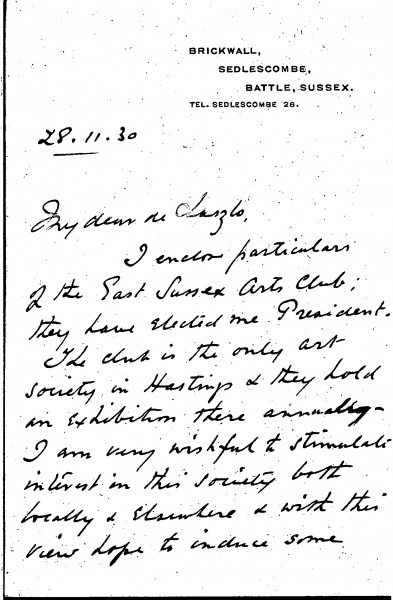 BRICKWALL,
SEDLESCOMBE,
BATTLE, SUSSEX.
TEL. SEDLESCOMBE 26.
28.11.30
My dear de Laszlo,
I enclose particulars
of the East Sussex Arts Club;
they have elected me President.
The club is the only art
society in Hastings & they hold
an exhibition there annually -
I am very wishful to stimulate
interest in this society both
locally & elsewhere & with this
view hope to induce some